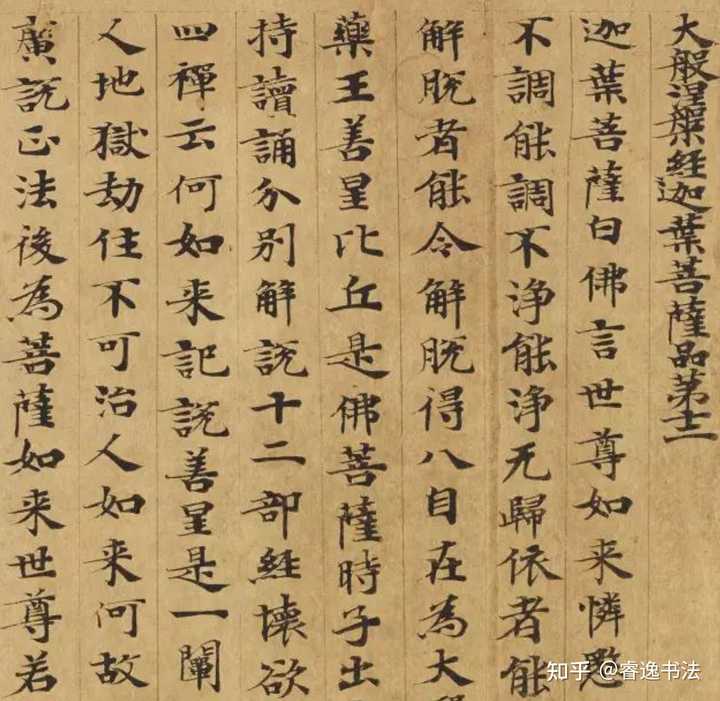 大般涅槃経迦葉菩薩品第十二
迦葉菩薩白佛言世尊如来憐愍
不調能調不浄能浄无歸依者能
解脫者能令解脫得八自在為大
藥王善星比丘是佛菩薩時子出
持讀誦分別解說十二部経壞欲
四禪云何如来記說善星是一闡
人地獄劫住不可治人如来何故
廣說正法後為菩薩如来世尊若
知乎 @睿逸书法